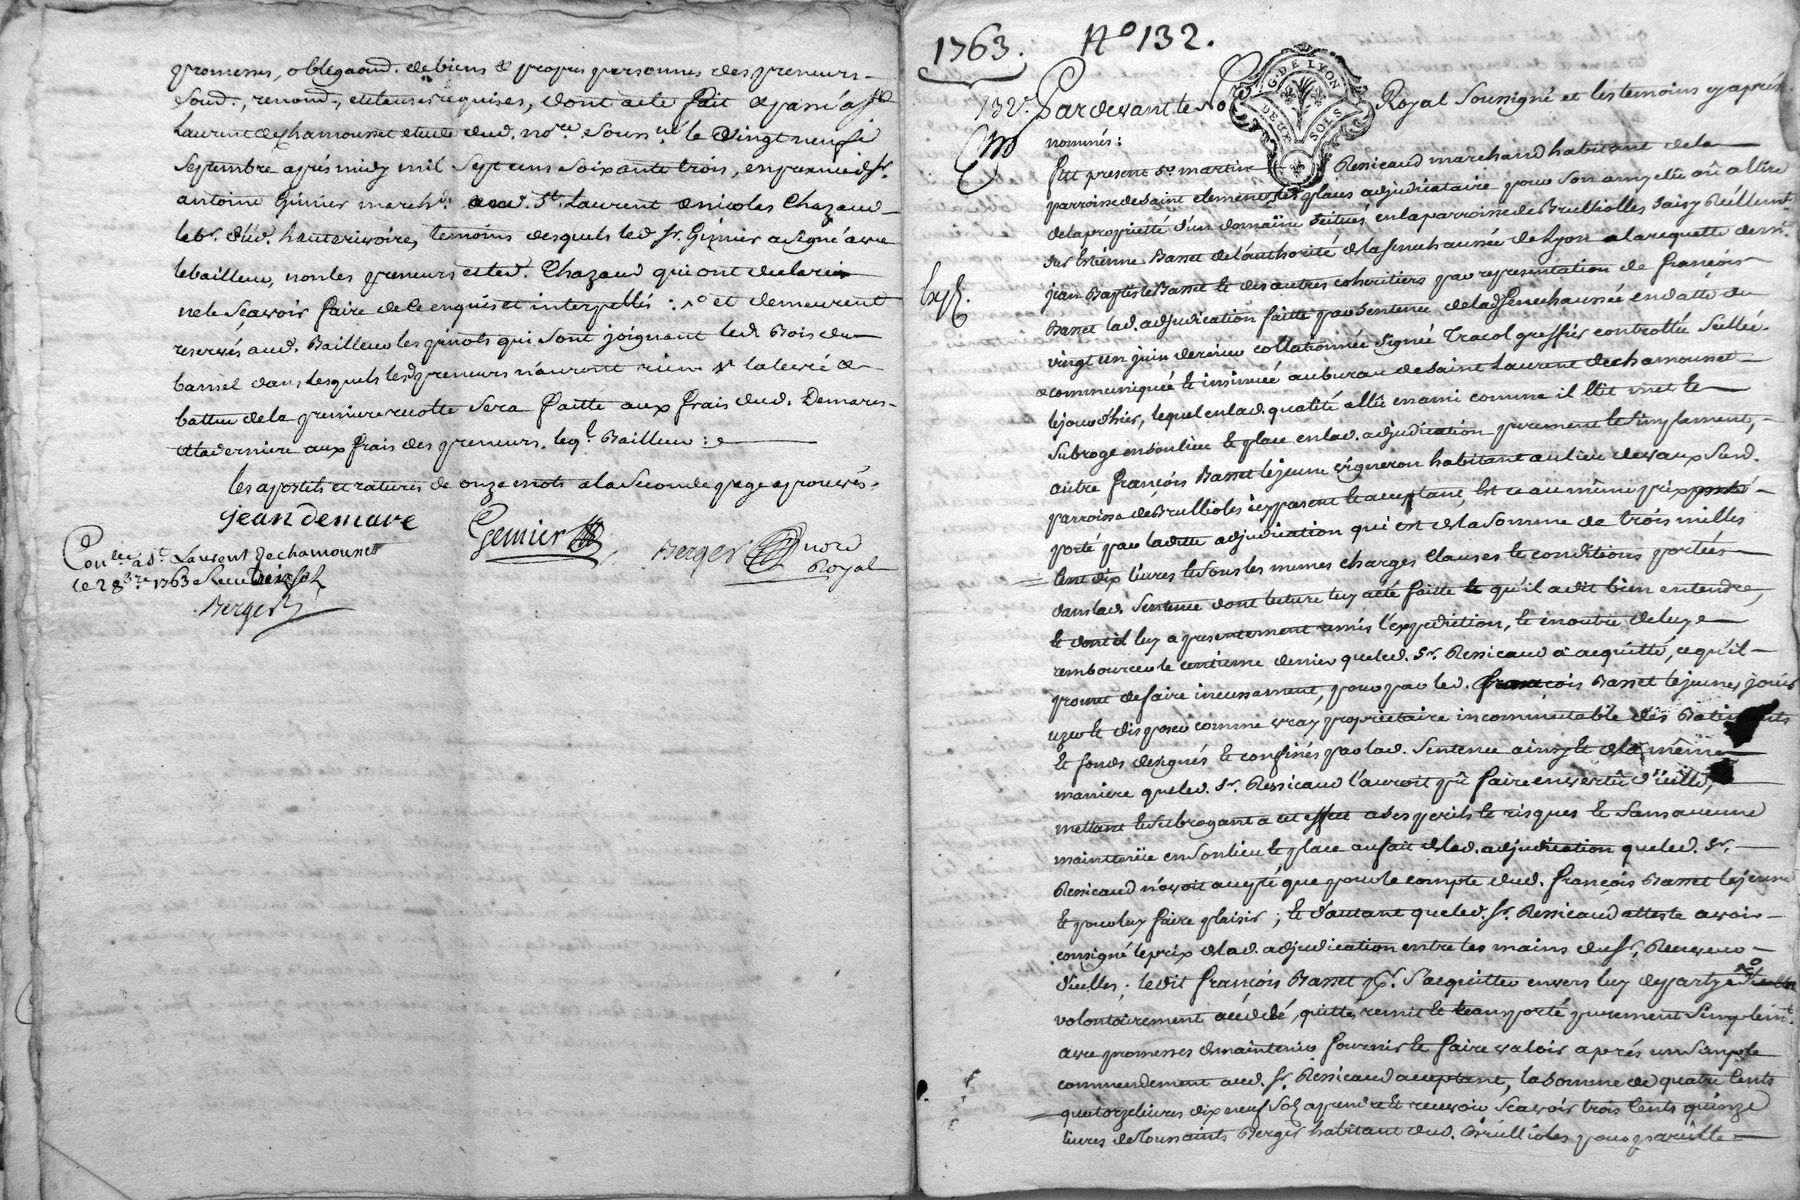 promesses, obligaond. de biens & propres personnes des preneurs
soud., renond., et clauses requises, dont acte fait & passé a St
Laurent de chamousset etude dud. nore. souss né le vingt neuf
septembre après midy mil sept cens soixante trois, en presence de sr.
antoine Gimier march. aud. St. Laurent & nicolas Chazaud
labr. dud. hauterivoire, temoins desquels led. sr. Gimier a signé avec
le bailleur, non les preneurs et led. Chazaud qui ont declaré
ne le scavoir faire de ce enquis et interpellés : et demeurent
reservés aud. Bailleur les qui sont joignant led. Bois du
dans lesquels lesd. preneurs n'auront rien & la levée &
battue de la premiere recolte sera faitte aux frais dud. Demare
et la derniere aux frais des preneurs. Bailleur :
les apostils et ratures de onze mots a la seconde page approuvés.
jean demare
Gemier
Berger nore Royal
Con. lé à St. Laurent de chamousset
le 28 bre 1763 Reçu treize sols
Berger
1763. No 132.
G. DE LYON
DEUX SOLS
132e Pardevant le No.re Royal soussigné et les temoins cy aprés
nommés :
fut present sr. martin Ressicaud marchand habitant de la
parroisse de saint clement les places adjudicataire pour son amy elû ou a elire
de la proprieté d'un domaine scitué en la parroisse de Brulliolles saisy réellement
sur Estienne Basset de l'authorité de la senechaussée de Lyon a la requette de
jean Baptiste Basset & des autres coheritiers par representation de françois
Basset lad. adjudication faitte par sentence de lad. senechaussée en datte du
vingt un juin dernier collationnée signé Tracol greffier controllée scellée
& communiquée & insinuée au bureau de saint Laurent de chamousset
le jour d'hier, lequel en lad. qualité elit en ami comme il elit met &
subroge en son lieu & place en lad. adjudication purement & simplement,
autre françois Basset le jeune vigneron habitant au lieu de vaux susd.
parroisse de Brullioles icy present & acceptant, Et ce au même prix
porté par laditte adjudication qui est de la somme de trois milles
cent dix livres & sous les memes charges clauses & conditions portées
dans lad. sentence dont lecture luy a été faitte & qu'il a dit bien entendre,
& dont il luy a presentement remis l'expedition, & en outre de luy
rembourcer le centieme denier que led. sr. Ressicaud a acquitté, ce qu'il
promet de faire incessament, pour par led. françois Basset le jeune jouir
user & disposer comme vray proprietaire incommutable des Batiments
& fonds designés & confinés par lad. sentence ainsy & de la même
maniere que led. sr. Ressicaud l'auroit pû faire en vertû d'icelle,
mettant & subrogeant a cet effet a ses perils & risques & sans aucune
maintenüe en son lieu & place au fait de lad. adjudication que led. sr.
Ressicaud n'avoit accepté que pour le compte dud. françois Basset le jeune
& pour luy faire plaisir ; & d'autant que led. sr. Ressicaud atteste avoir
consigné le prix de lad. adjudication entre les mains du sr. Receveur
d'icelles ; ledit françois Basset pr. s'acquitter envers luy de partye
volontairement a cédé, quitté, remit & transporté purement simplemt.
avec promesses de maintenir fournir & faire valoir aprés un simple
commendement aud. sr. Ressicaud acceptant, la somme de quatre cents
quatorze livres dix neuf sols a prendre & recevoir scavoir trois cents quinze
livres de Toussaints Berger habitant dud. Brullioles pour pareille